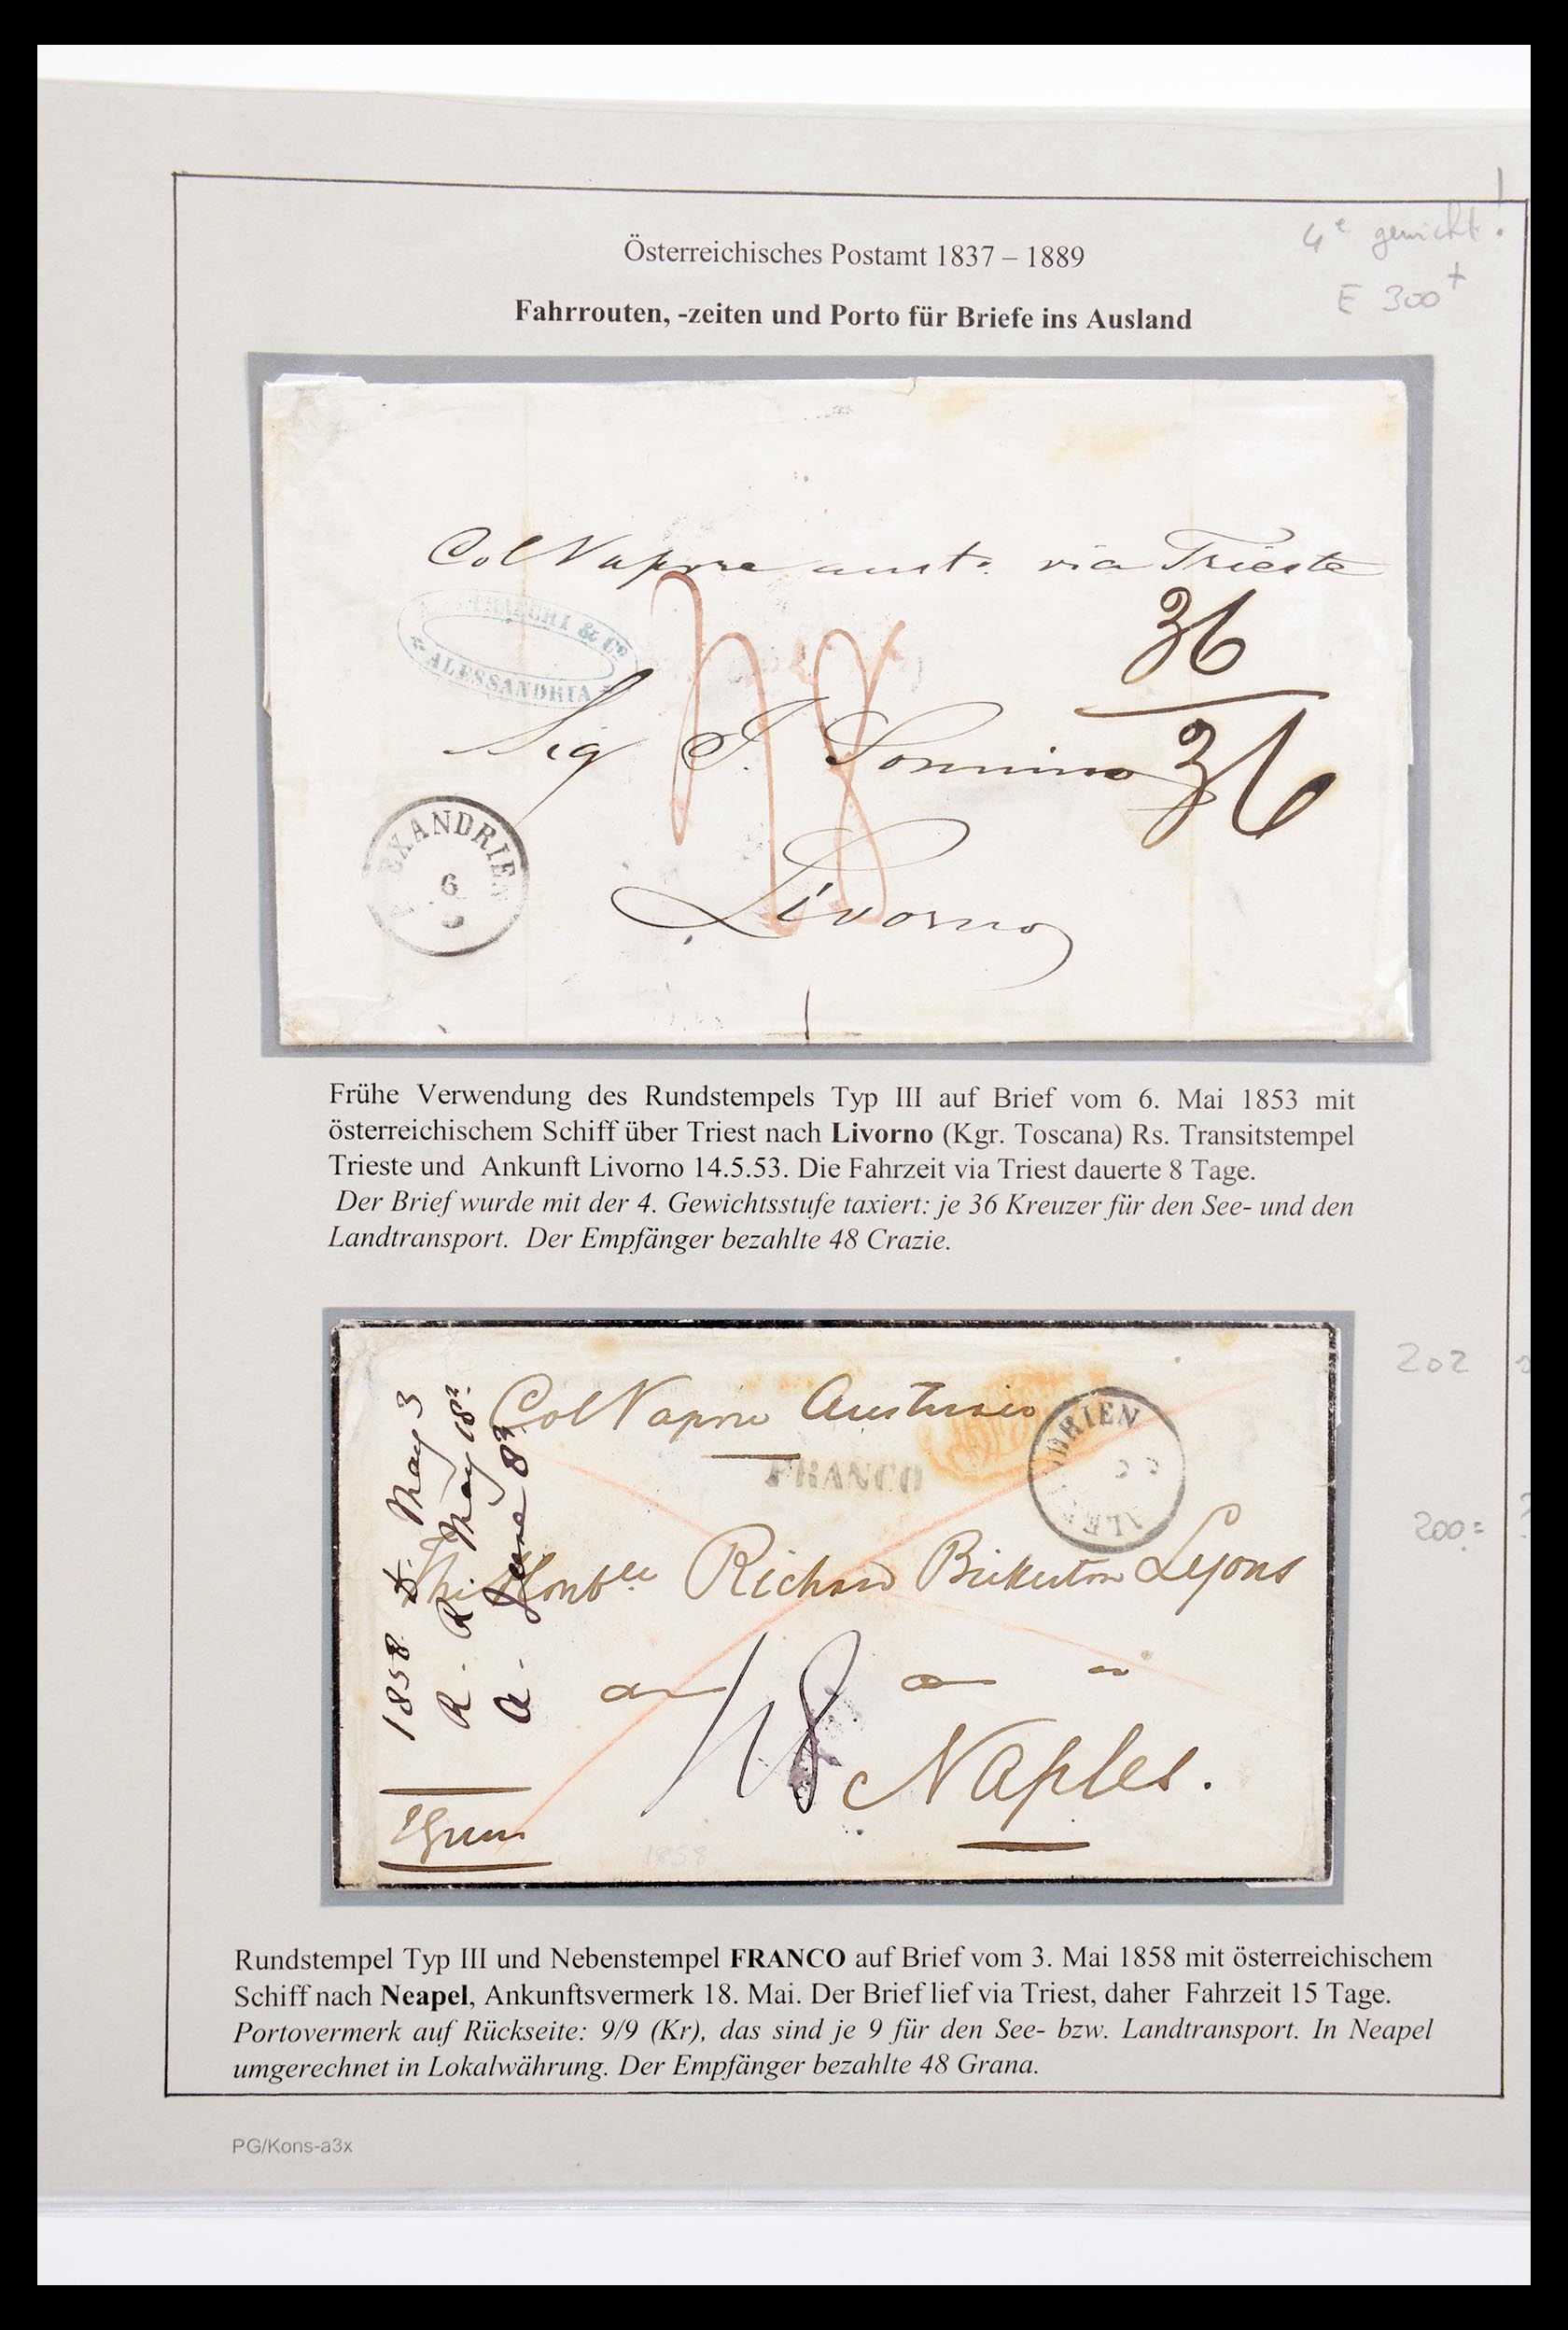 Österreichisches Postamt 1837 – 1889
4e gewicht!
E 300+
Fahrrouten, -zeiten und Porto für Briefe ins Ausland
Col Vapore aust. via Trieste
36
36
& Co
ALESSANDRIA
48
Sig J. Sonnino
EXANDRIEN
6
Livorno
Frühe Verwendung des Rundstempels Typ III auf Brief vom 6. Mai 1853 mit
österreichischem Schiff über Triest nach Livorno (Kgr. Toscana) Rs. Transitstempel
Trieste und Ankunft Livorno 14.5.53. Die Fahrzeit via Triest dauerte 8 Tage.
Der Brief wurde mit der 4. Gewichtsstufe taxiert: je 36 Kreuzer für den See- und den
Landtransport. Der Empfänger bezahlte 48 Crazie.
202
200=
Col Vapore Austriaco
FRANCO
DRIEN
ALE
1858 May 3
R. R May 18
a. June 8
The Honble Richard Bickerton Lyons
48
Naples.
1858
Rundstempel Typ III und Nebenstempel FRANCO auf Brief vom 3. Mai 1858 mit österreichischem
Schiff nach Neapel, Ankunftsvermerk 18. Mai. Der Brief lief via Triest, daher Fahrzeit 15 Tage.
Portovermerk auf Rückseite: 9/9 (Kr), das sind je 9 für den See- bzw. Landtransport. In Neapel
umgerechnet in Lokalwährung. Der Empfänger bezahlte 48 Grana.
PG/Kons-a3x